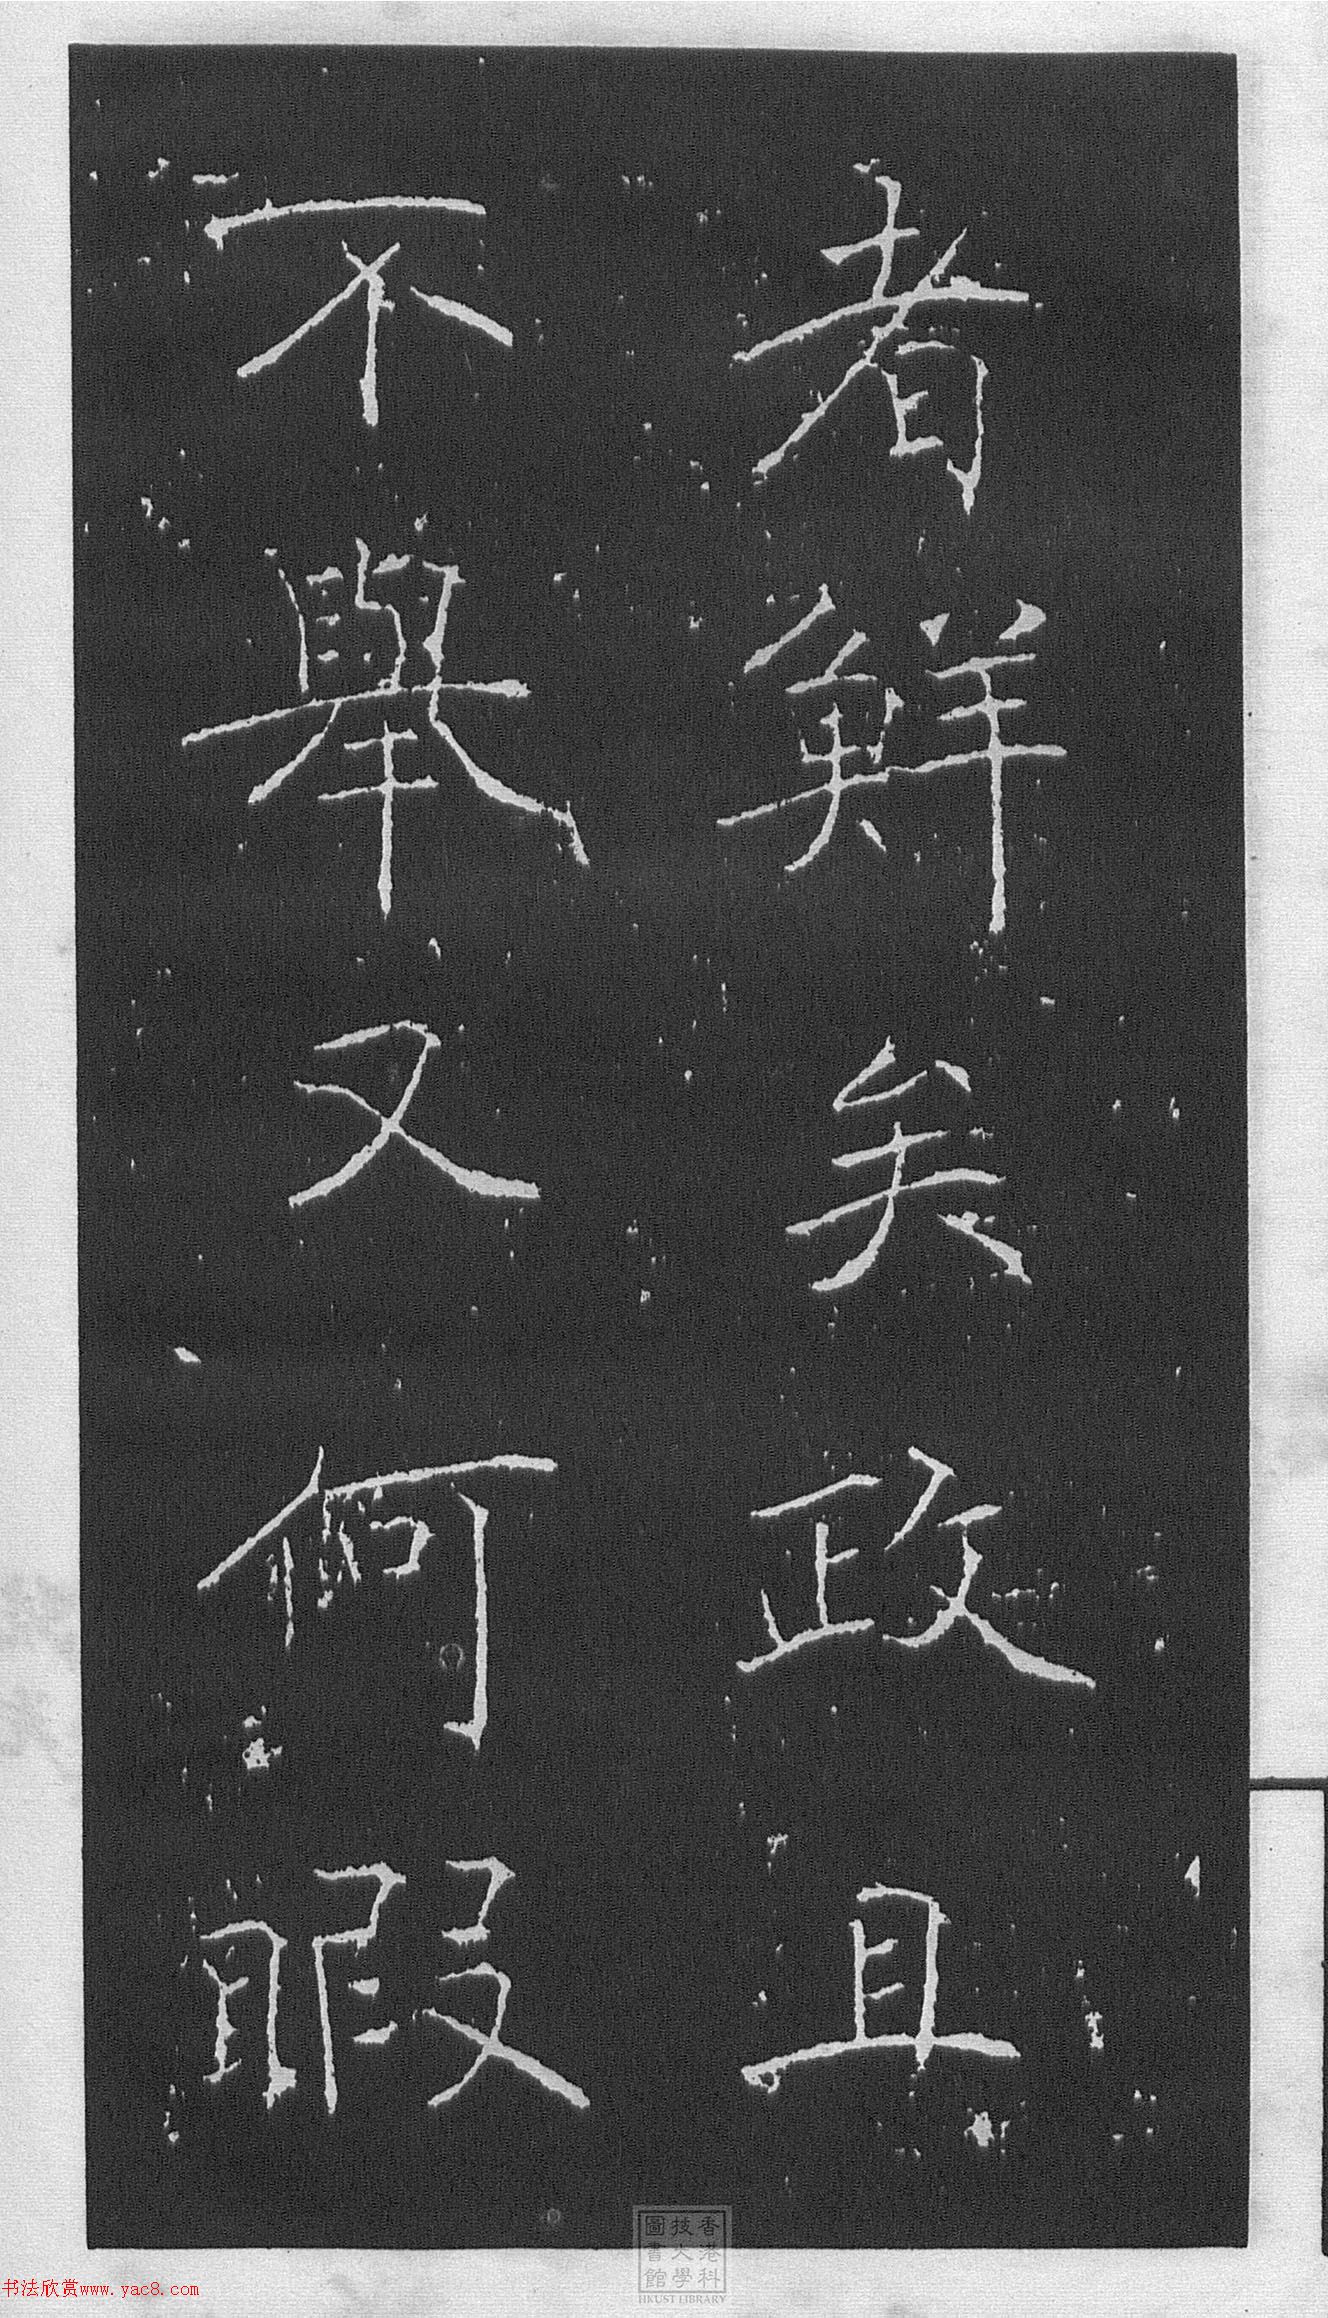 者鮮矣政且
不舉又何暇
香港科
技大學
圖書館
HKUST LIBRARY
书法欣赏www.yac8.com